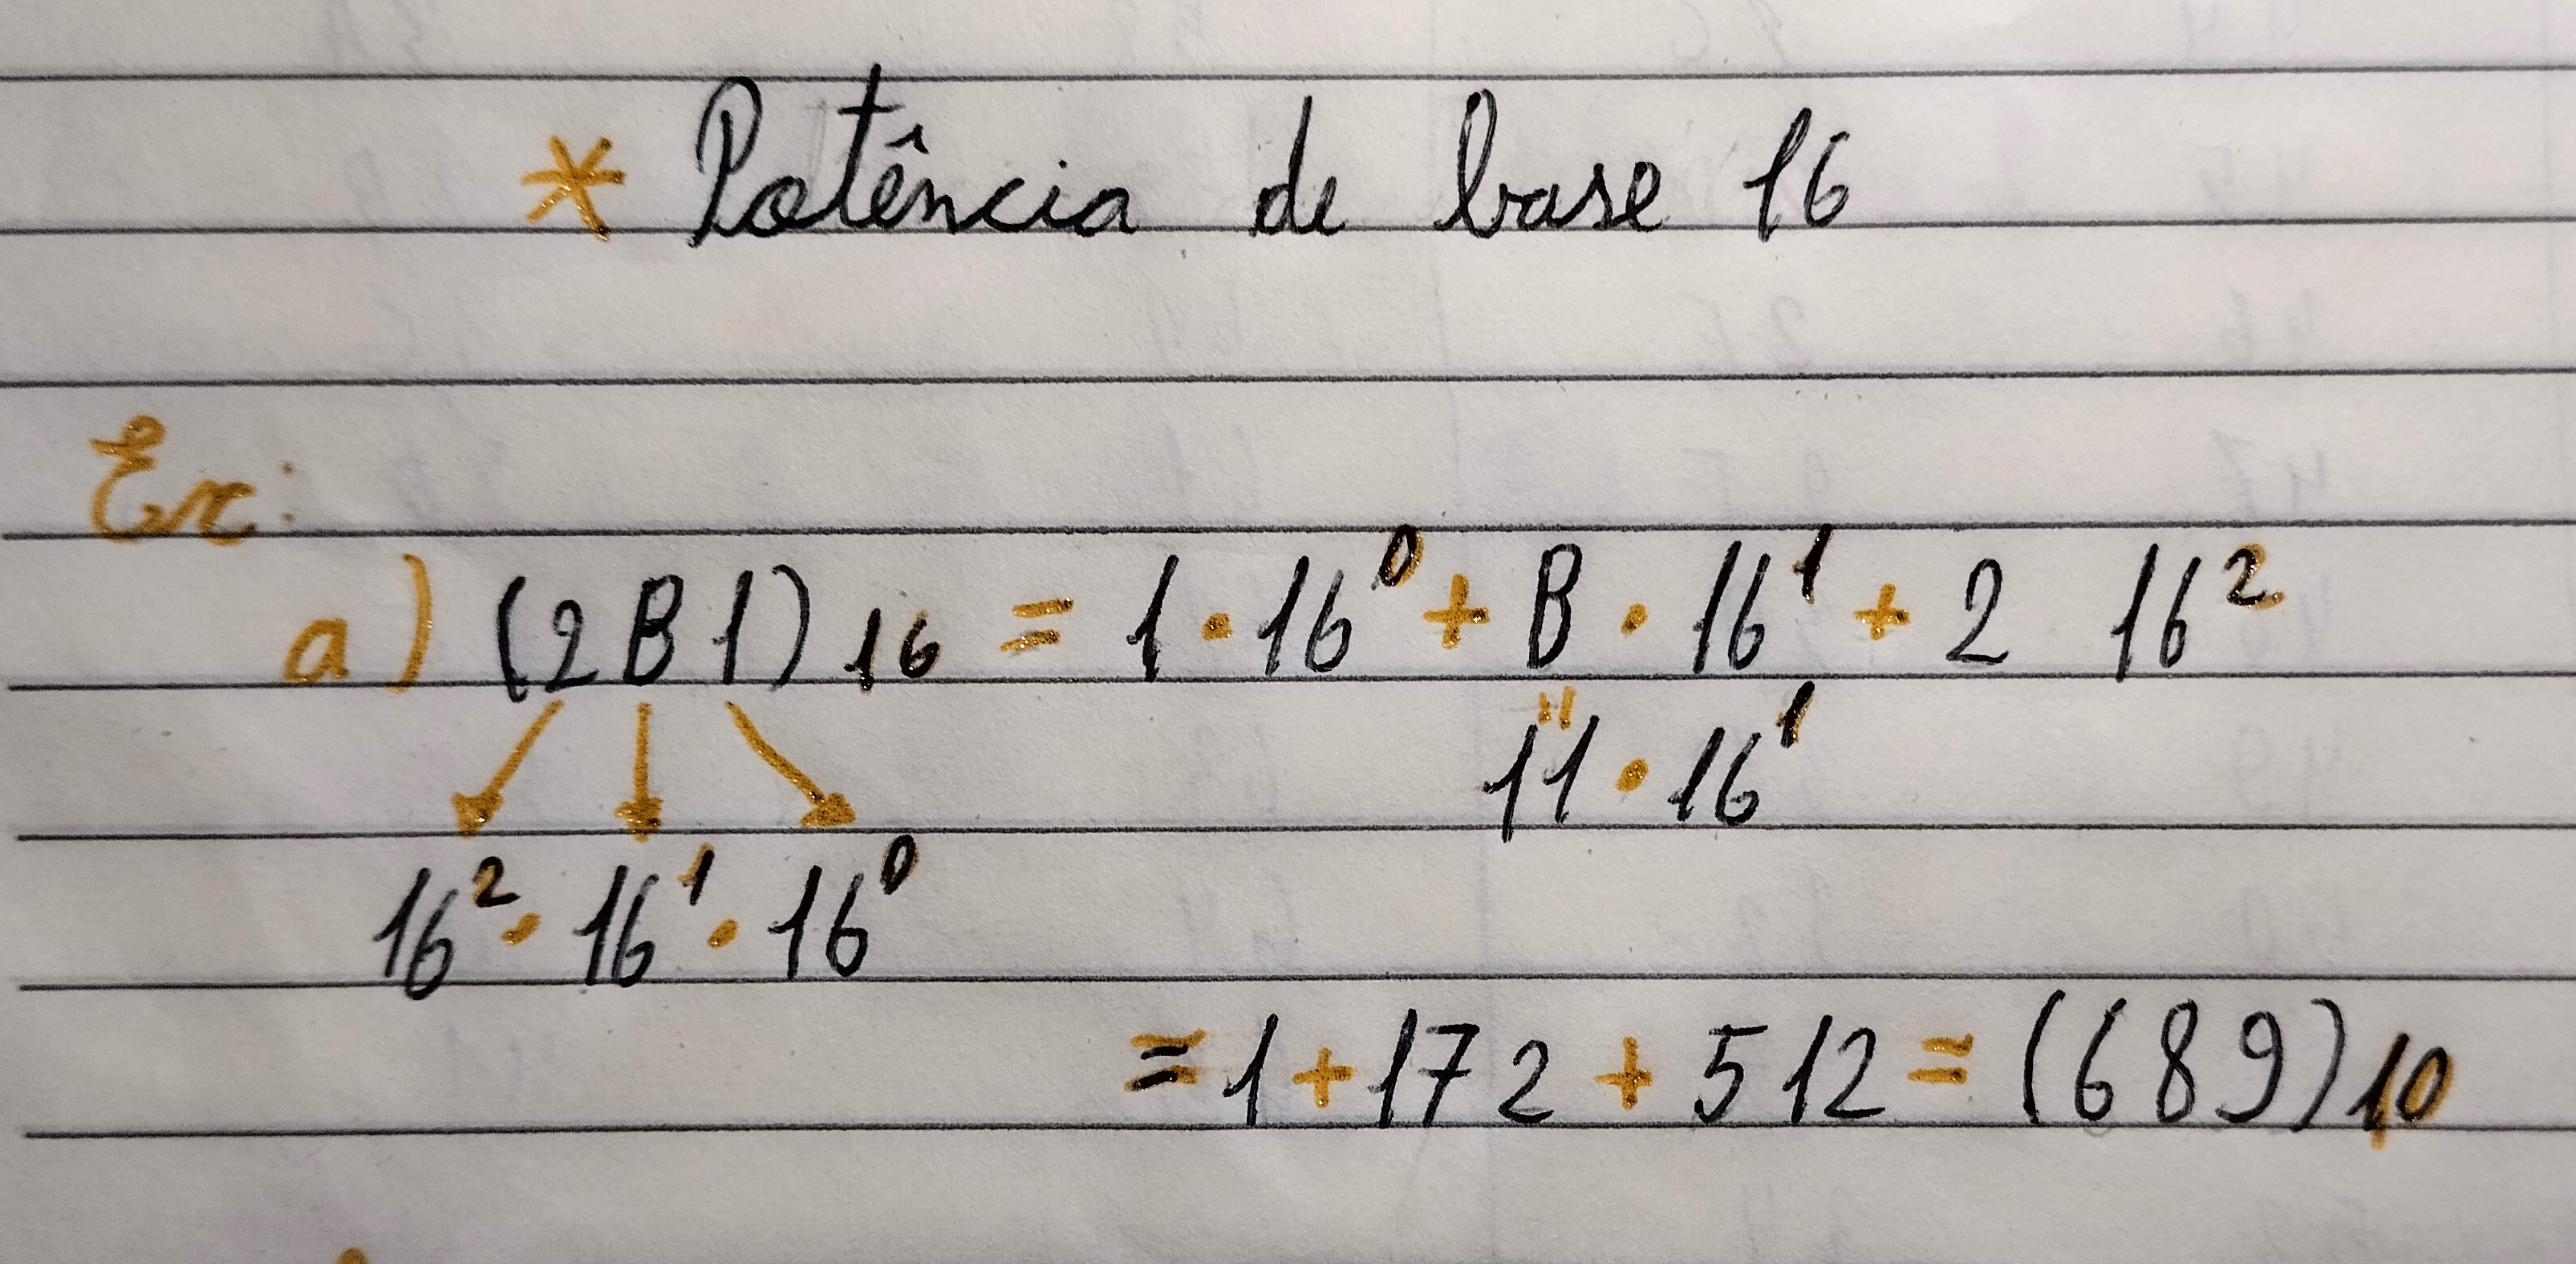 * Potência de base 16
Ex:
a) (2B1)₁₆ = 1 · 16⁰ + B · 16¹ + 2 16²
"
11 · 16¹
16² · 16¹ · 16⁰
= 1 + 172 + 512 = (689)₁₀